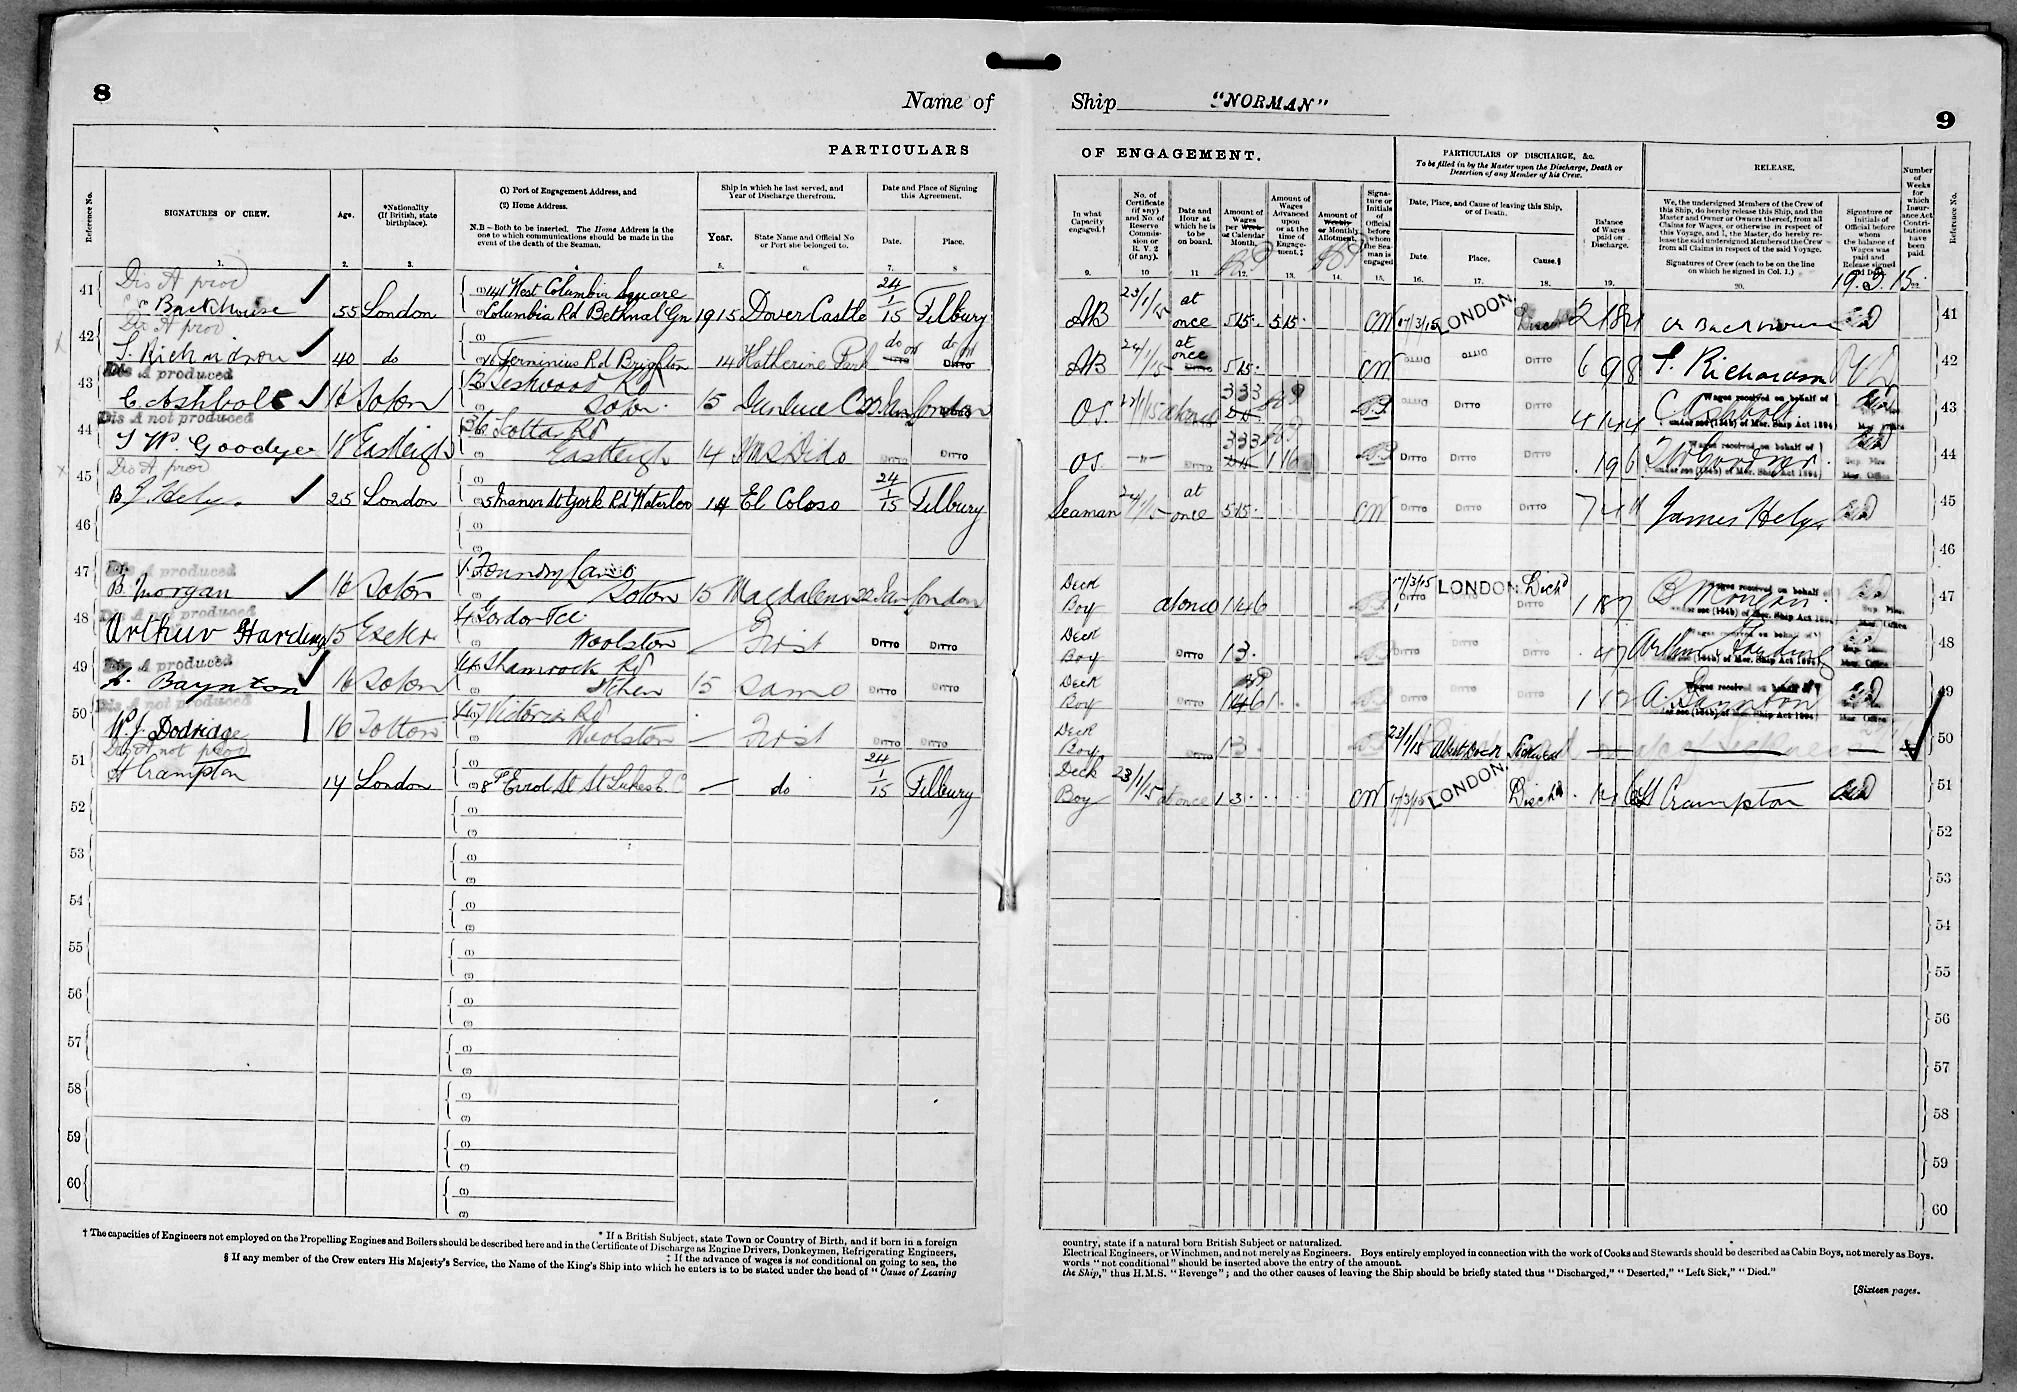 8
Name of
Ship "NORMAN"
9
PARTICULARS
OF ENGAGEMENT.
PARTICULARS OF DISCHARGE, &c.
To be filled in by the Master upon the Discharge, Death or
Desertion of any Member of his Crew.
RELEASE.
Number of Weeks for which Insurance Act Contributions have been paid.
Reference No.
SIGNATURES OF CREW.
Age.
*Nationality
(If British, state
birthplace).
(1) Port of Engagement Address, and
(2) Home Address.
N.B—Both to be inserted. The Home Address is the
one to which communications should be made in the
event of the death of the Seaman.
Ship in which he last served, and
Year of Discharge therefrom.
Year.
State Name and Official No
or Port she belonged to.
Date and Place of Signing
this Agreement.
Date.
Place.
In what Capacity engaged.†
No. of Certificate (if any) and No. of Reserve Commission or R. V. 2 (if any).
Date and Hour at which he is to be on board.
Amount of Wages per Week or Calendar Month.
Amount of Wages Advanced upon or at the time of Engagement.‡
Amount of Weekly or Monthly Allotment.
Signature or Initials of Official before whom the Seaman is engaged
Date, Place, and Cause of leaving this Ship,
or of Death.
Date.
Place.
Cause.§
Balance of Wages paid on Discharge.
We, the undersigned Members of the Crew of
this Ship, do hereby release this Ship, and the
Master and Owner or Owners thereof, from all
Claims for Wages, or otherwise in respect of
this Voyage, and I, the Master, do hereby release the said undersigned Members of the Crew
from all Claims in respect of the said Voyage.
Signatures of Crew (each to be on the line
on which he signed in Col. 1.)
Signature or Initials of Official before whom the balance of Wages was paid and Release signed
Reference No.
1. 2. 3. 4 5. 6. 7. 8
9. 10 11 12. 13. 14. 15. 16. 17. 18. 19. 20.
41 Dis A prod
Backhouse 55 London (1) 14 West Columbia Square
Columbia Rd Bethnal Gn 1915 Dover Castle 24/1/15 Tilbury
AB 23/1/15 at once 5 15 5 15 17/3/15 LONDON. 41
42 Dis A prod
Richardson 40 do Brighton 14 Katherine Park do do
AB 24/1/15 at once 5 15 DITTO DITTO DITTO 6 9 8 Richardson 42
43 Dis A produced
C. Ashbolt 16 Soton Rd
Soton. 15 London
OS. at once DITTO DITTO DITTO 4 14 4 C Ashbolt 43
Wages received on behalf of
under sec (164b) of Mer. Ship Act 1894
44 Dis A not produced
W. Goodyer 18 Eastleigh 36 Scotta Rd
Eastleigh 14 HMS Dido DITTO DITTO
OS. DITTO DITTO DITTO DITTO 19 6 44
Wages received on behalf of
under sec (164b) of Mer. Ship Act 1894
45 Dis A prod
J. Hely. 25 London 5 Manor St York Rd Waterloo 14 El Coloso 24/1/15 Tilbury
Seaman 24/1/15 at once 5 15 DITTO DITTO DITTO 7 4 11 James Hely 45
46
46
47 Dis A produced
B. Morgan 16 Soton Foundry Lane
Soton 15 Magdalena 22 Jan London
Deck Boy at once 1 4 6 17/3/15 LONDON Disch'd 1 18 7 B Morgan 47
Wages received on behalf of
under sec (164b) of Mer. Ship Act 1894
48 Dis A not produced
Arthur Harding 15 Exeter 4 Gordon Tce
Woolston First DITTO DITTO
Deck Boy DITTO 1 3 . DITTO DITTO Arthur Harding 48
Wages received on behalf of
under sec (164b) of Mer. Ship Act 1894
49 Dis A produced
A. Baynton 16 Soton 44 Shamrock Rd
Itchen 15 Same DITTO DITTO
Deck Boy DITTO 1 4 6 DITTO DITTO DITTO A. Baynton 49
Wages received on behalf of
under sec (164b) of Mer. Ship Act 1894
50 Dis A not produced
W. J. Dodridge 16 Totton 47 Victoria Rd
Woolston First DITTO DITTO
Deck Boy DITTO 1 3 . 23/1/15 Albert Dock 50
51 Dis A not prod
H Crampton 17 London Errol St St Lukes E.C — do 24/1/15 Tilbury
Deck Boy 23/1/15 at once 1 3 . 17/3/15 LONDON. Disch'd H Crampton 51
52 52
53 53
54 54
55 55
56 56
57 57
58 58
59 59
60 60
† The capacities of Engineers not employed on the Propelling Engines and Boilers should be described here and in the Certificate of Discharge as Engine Drivers, Donkeymen, Refrigerating Engineers,
* If a British Subject, state Town or Country of Birth, and if born in a foreign
‡ If the advance of wages is not conditional on going to sea, the
§ If any member of the Crew enters His Majesty's Service, the Name of the King's Ship into which he enters is to be stated under the head of "Cause of Leaving
country, state if a natural born British Subject or naturalized.
Electrical Engineers, or Winchmen, and not merely as Engineers. Boys entirely employed in connection with the work of Cooks and Stewards should be described as Cabin Boys, not merely as Boys.
words "not conditional" should be inserted above the entry of the amount.
the Ship," thus H.M.S. "Revenge"; and the other causes of leaving the Ship should be briefly stated thus "Discharged," "Deserted," "Left Sick," "Died."
[Sixteen pages.